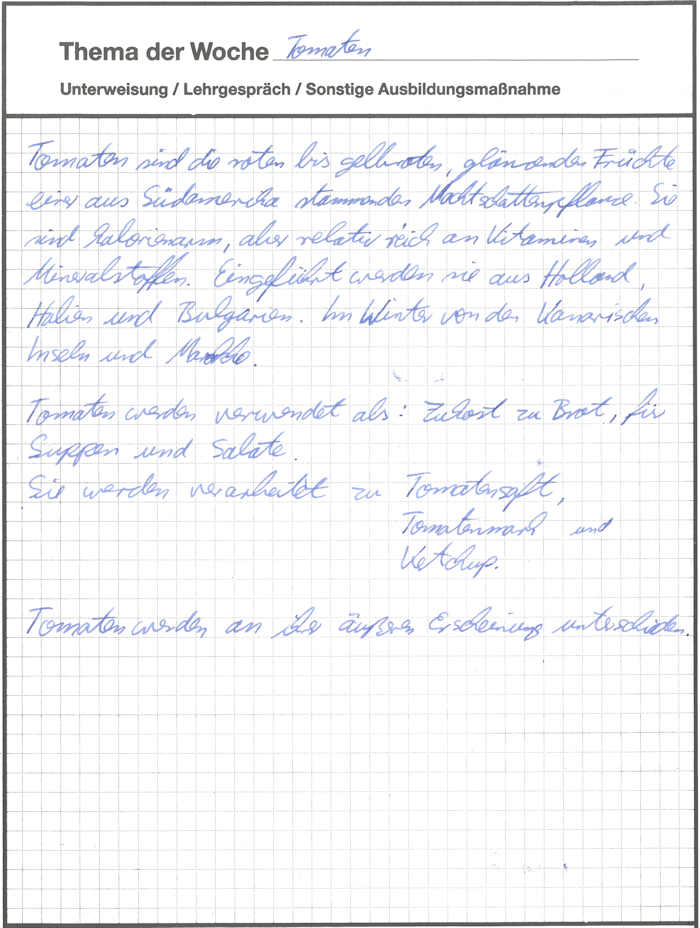 Thema der Woche Tomaten
Unterweisung / Lehrgespräch / Sonstige Ausbildungsmaßnahme
Tomaten sind die roten bis gelbroten, glänzenden Früchte
einer aus Südamerika stammenden Nachtschattenpflanze. Sie
sind kalorienarm, aber relativ reich an Vitaminen und
Mineralstoffen. Eingeführt werden sie aus Holland,
Italien und Bulgarien. Im Winter von den Kanarischen
Inseln und Marokko.
Tomaten werden verwendet als: Zukost zu Brot, für
Suppen und Salate.
Sie werden verarbeitet zu Tomatensaft,
Tomatenmark und
Ketchup.
Tomaten werden an ihrer äußeren Erscheinung unterschieden.